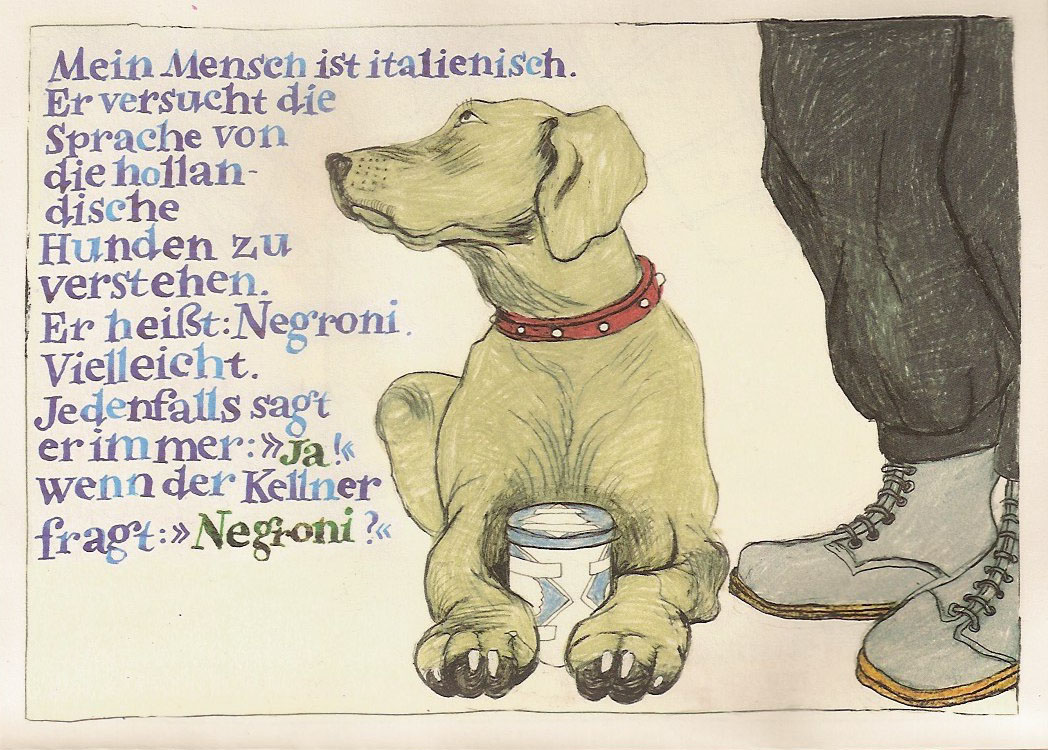 Mein Mensch ist italienisch.
Er versucht die
Sprache von
die hollan-
dische
Hunden zu
verstehen.
Er heißt: Negroni.
Vielleicht.
Jedenfalls sagt
er immer: »Ja!«
wenn der Kellner
fragt: »Negroni?«